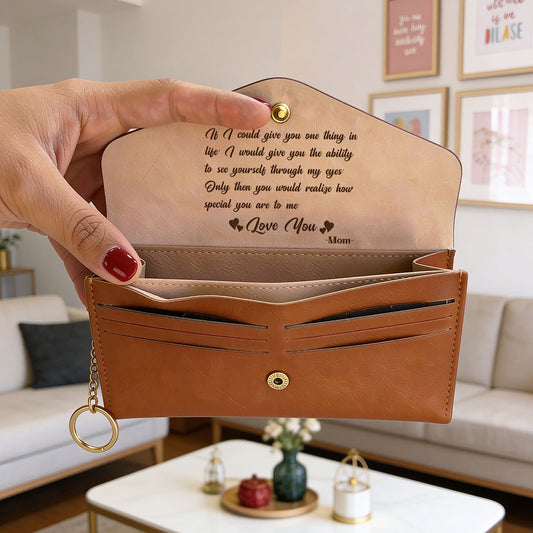 If I could give you one thing in
life I would give you the ability
to see yourself through my eyes
Only then you would realize how
special you are to me
Love You
-Mom-